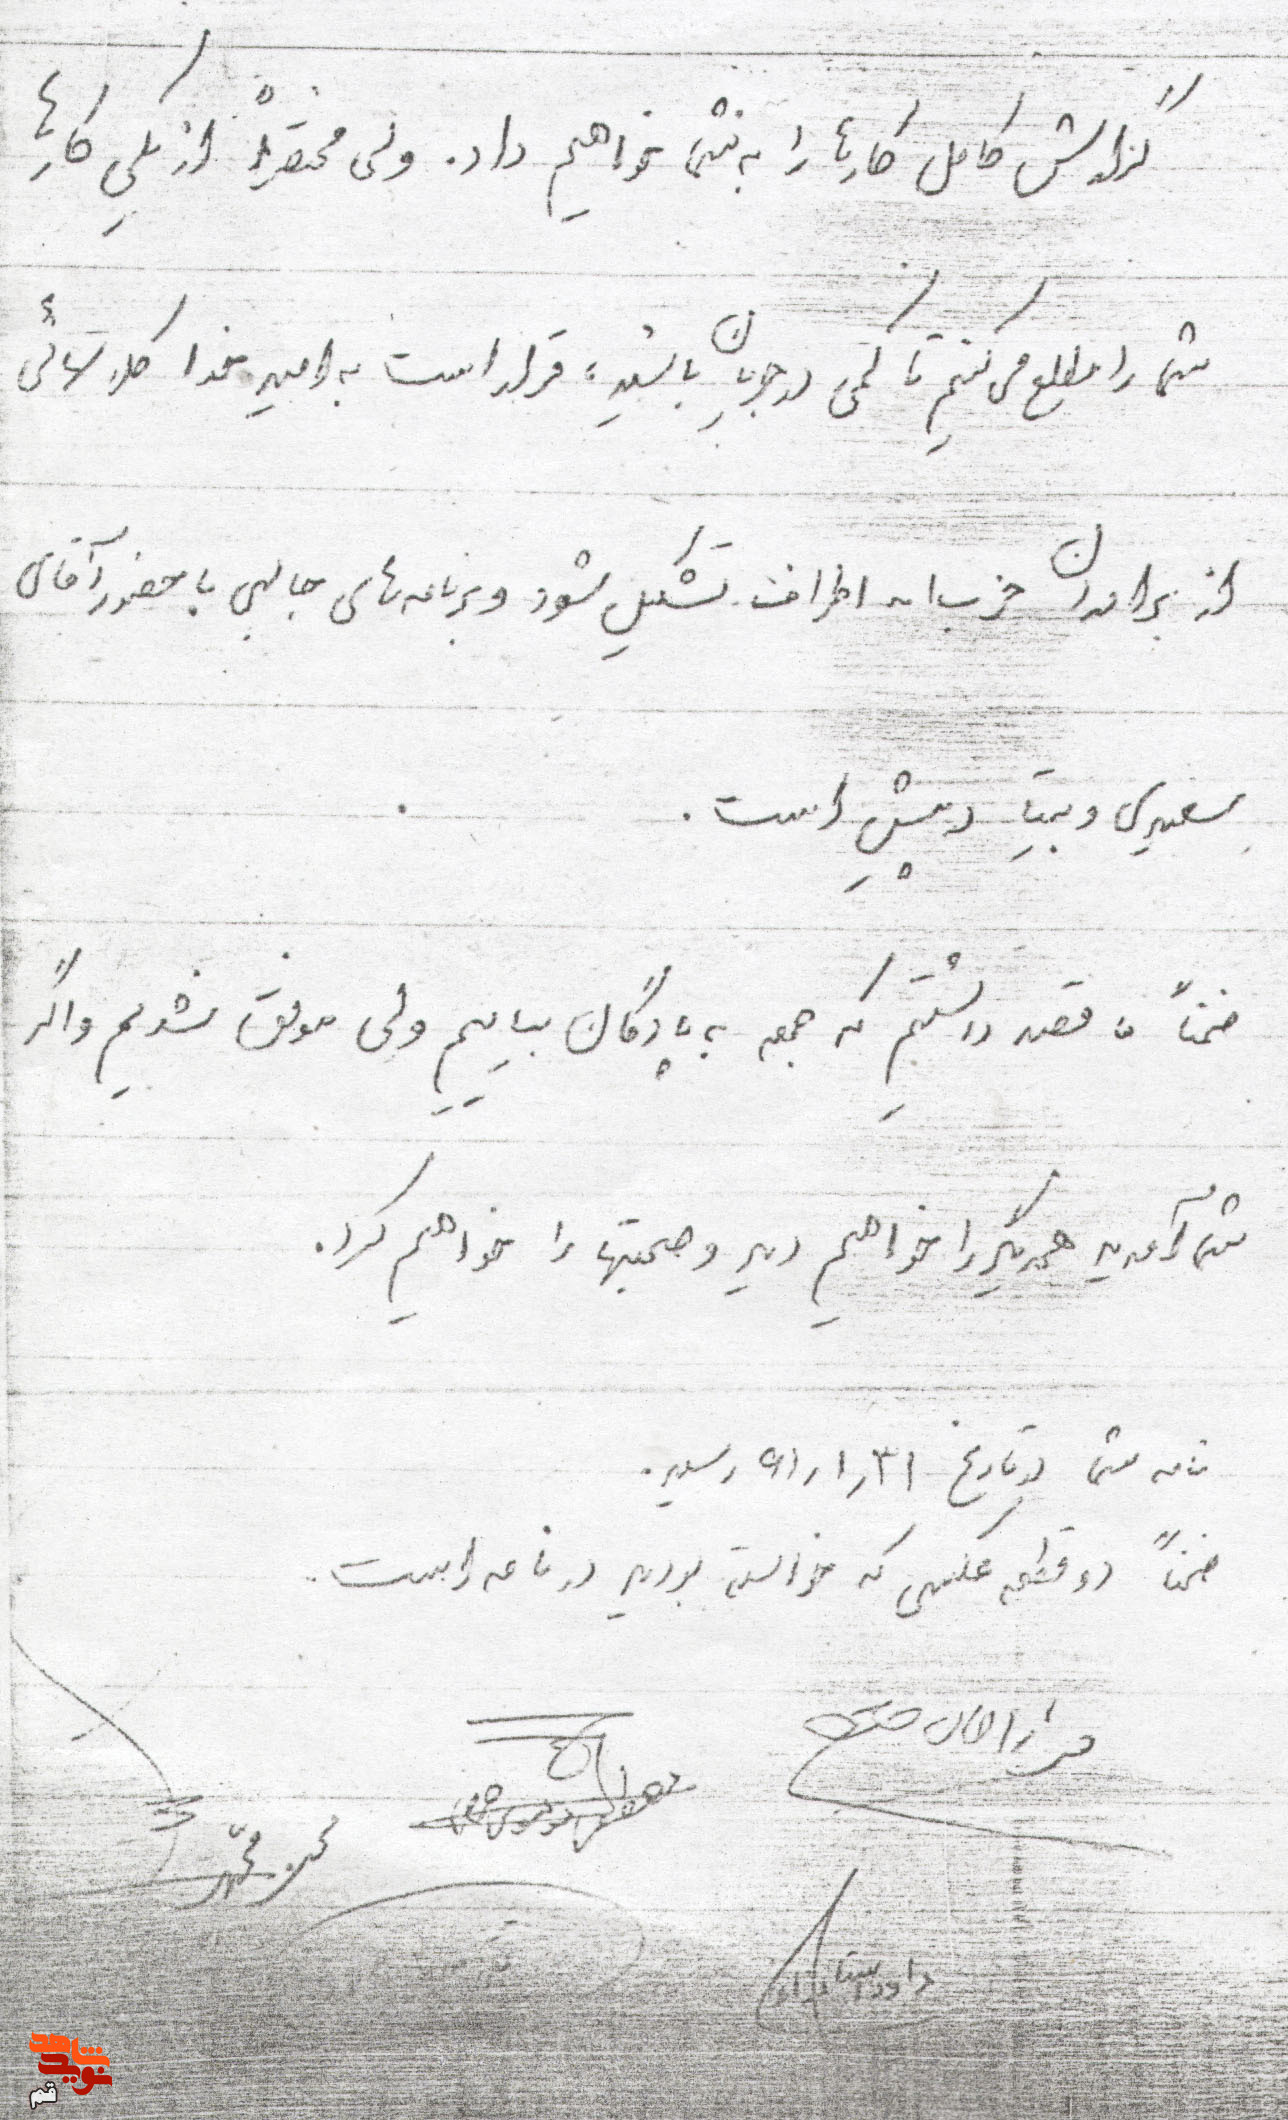 گزارش کامل کارها را به شما خواهیم داد. ولی مختصراً از کلیِ کارها
شما را مطلع می‌کنیم تا کمی در جریان باشید، قرار است به امید خدا کلاسهائی
از برادران حزب‌اله اطراف تشکیل شود و برنامه‌های جالبی با حضور آقای
سعیدی و بیتا در پیش است.
ضمناً ما قصد داشتیم که جمعه به پادگان بیاییم ولی موفق نشدیم و اگر
شما آمدید همدیگر را خواهیم دید و صحبتها را خواهیم کرد.
نامه شما در تاریخ ۳۱ر۱ر۶۱ رسید.
ضمناً دو قطعه عکسی که خواسته بودید در نامه است.
محسن محمدی
داود
نوید شاهد
قم